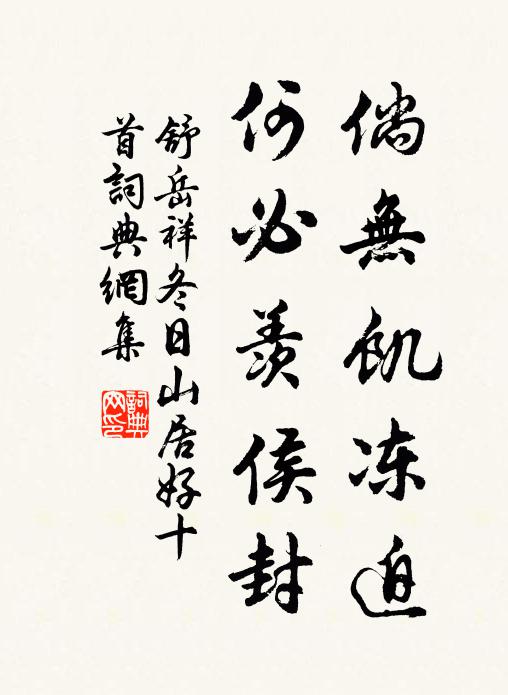 倘無飢凍迫
何必羨侯封
舒岳祥冬日山居好十
首詞典網集
詞典
网印